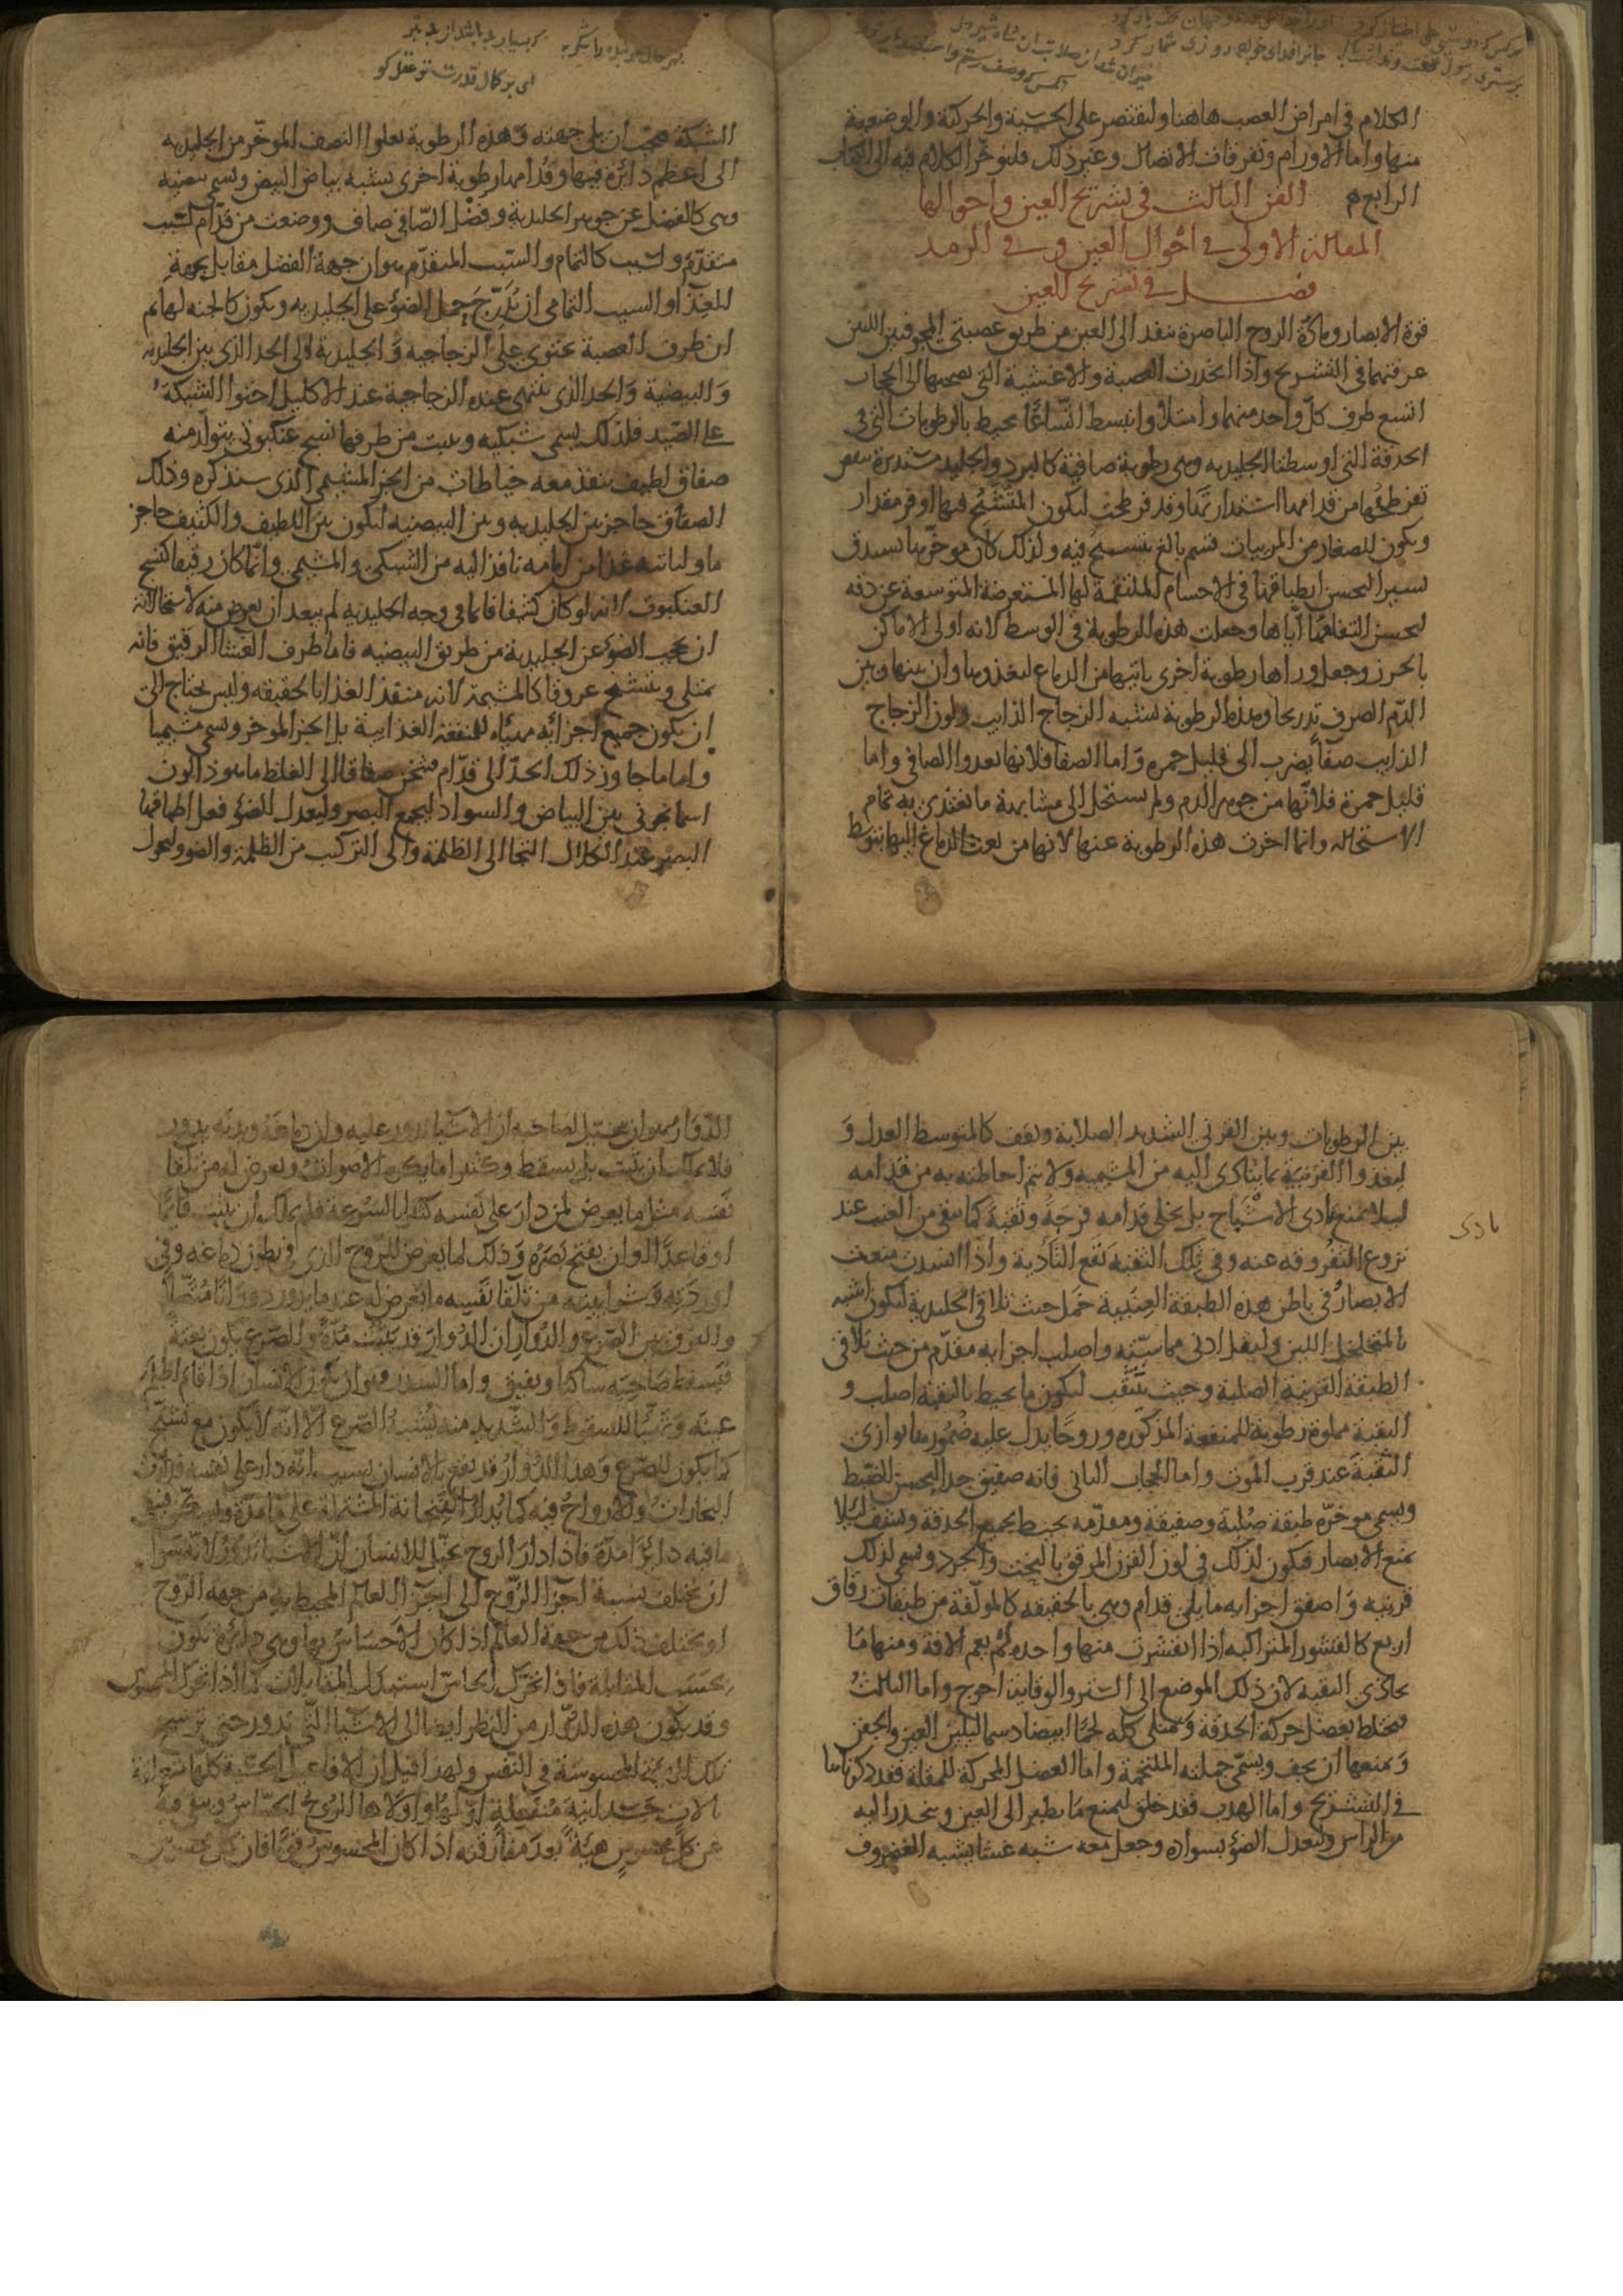 الكلام في امراض العصب هاهنا ولنقتصر على الحسّية والحركية والوضعية
منها واما الاورام وتفرقات الاتصال وغير ذلك فلنؤخّر الكلام فيه الى الكتاب
الرابع م الفن الثالث في تشريح العين واحوالها
المقالة الاولى في احوال العين و في الرمد
فصل في تشريح العين
قوة الابصار ومادّة الروح الباصرة تنفذ الى العين من طريق عصبتي المجوفتين اللتين
عرفتهما في التشريح واذا انحدرت العصبة والاغشية التي تصحبها الى الحجاب
اتسع طرف كلّ واحد منهما وامتلأ وانبسط اتّساعًا يحيط بالرطوبات التي في
الحدقة التي اوسطها الجليديه وهي رطوبة صافية كالبرد والجليد مستديرة ينقص
تفرطحها من قدامها استدارتها وقد فرطحت ليكون المتشبح فيها اوفر مقدار
ويكون للصغار من المرييات قسم بالغ يتشبح فيه ولذلك كان موخّرها يستدق
يسيرا ليحسن انطباقها في الاجسام الملتقمة لها المستعرضة المتوسعة عن دقه
ليحسن التقامها اياها وجعلت هذه الرطوبة في الوسط لانه اولى الاماكن
بالحرز وجعل وراءها رطوبة اخرى تاتيها من الدماغ لتغذوها وان بينها وبين
الدّم الصرف تدريجا وهذه الرطوبة تشبه الزجاج الذايب ولون الزجاج
الذايب صفا يضرب الى قليل حمرة وّاما الصفا فلانها تغدوا الصافي واما
قليل حمرة فلانّها من جوهر الدم ولم يستحل الى مشابهة ما تغتذى به تمام
الاستحاله وانما اخرت هذه الرطوبة عنها لانها من بعث الدماغ اليها بتوسط
الشبكة فيجب ان يلى جهته وهذه الرطوبة تعلوا النصف الموخّر من الجليديه
الى اعظم دائرة فيها وقُدامها رطوبة اخرى تشبه بياض البيض وتسمى بيضيه
وهي كالفضل عن جوهر الجليدية وفضْل الصّافي صاف ووضعت من قدّام لسبب
متقدّم ولسبب كالتمام والسّبب المتقدّم هو ان جهة الفضل مقابل لجهة
للغذا والسبب التمامى ان يُدَرّجَ حمل الضوء على الجليديه ويكون كالجنه لها ثم
ان طرف العصبة يحتوى على الزجاجيه وَالجليدية الى الحد الذي بين الجليديه
وَالبيضية وَالحد الذى ينتهى عنده الزجاجية عند الاكليل احتوا الشبكة
على الصّيد فلذلك يسمى شبكيه وينبت من طرفها نسج عنكبوتى يتولّد منه
صفاق لطيف ينفذ معه خياطات من الجزء المشيمى الذى سنذكره وذلك
الصفاق حاجز بين الجليديه وبين البيضيه ليكون بين اللطيف والكثيف حاجز
ما وليأتيه غذا من امامه نافذ اليه من الشبكى والمشيمى وانّما كان رقيقا كنسج
العنكبوت لانه لو كان كثيفا قائما في وجه الجليديه لم يبعد ان يعرض منه لاستحالته
ان يحجب الضوء عن الجليدية من طريق البيضيه فاما طرف الغشا الرقيق فانه
يمتلى وينتسج عروقا كالمشيمة لانه منفذ الغذا بالحقيقه وليس يحتاج الى
ان يكون جميع اجزائه مهياه للمنفعة الغذايية بل الجزء الموخر ويسمى مشيميا
واما ما جاوز ذلك الحدّ الى قدّام فثخن صفاقا الى الغلظ ما هو ذا لون
اسمانجونى بين البياض والسواد ليجمع البصر وليعدل الضوء فعل اطباقنا
البصر عند الكلال التجا الى الظلمة والى التركيب من الظلمة والضوء وليحول
بين الرطوبات وبين القرنى الشديد الصلابة ويقف كالمتوسط العدل وَ
ليغدوا القرنيّة بما يتأدى اليه من المشيميه ولا يتم احاطته به من قدامه
ليلا يمنع تادى الاشْباح بل يخلى قدامه فرجَةً وثقبَة كما يبقى من العنب عند
نزوع الثفروقه عنه وفي تلك الثقبه تقع التأدية واذا انسدت منعت
تادى
الابصار وفي باطن هذه الطبقة العِنَبِيبة خَمل حيث تلاقى الجليدية ليكون اشبه
بالمتخلخل اللين وليقل ادنى مماسّته واصلب اجزايه مقدّم من حيث تلاقى
الطبقة القرنية الصلبة وحيث يتثقّب ليكون ما يحيط بالثقبة اصلب و
الثقبة مملوة رطوبة للمنفعة المذكوره وروحًا يدل عليه ضُمُور ما يوازى
الثقبةَ عند قرب الموت واما الحجاب الثانى فانه صفيق جدا ليحسن الضّبط
ويسمى موخرّه طبقة صُلْبة وصفيقة ومقدّمه يحيط بجميع الحدقة ويشف ليلا
يمنع الابصار فيكون لذلك في لون القرن المرقق بالنحت والجرد ويسمى لذلك
قرنيه وَ اصفق اجزايه ما يلى قدام وهي بالحقيقه كالمولّفة من طبقات رقاق
اربع كالقشور المتراكبه اذا انقشرت منها واحده لم يعم الافة ومنها مَا
يحاذى الثقبه لان ذلك الموضع الى السّتر والوقاية احوج واما الثالث
فيختلط بعضل حركة الحدقة وَيمتلى كله لحمًا ابيضا دسما ليلين العين والجفن
وَ يمنعها ان يجف ويسمّى جملته الملتحمة واما العضل المحركة للمقلة فقد ذكرناها
في التشريح واما الهدب فقد خلق ليمنع مَا يطير الى العين وينحدر اليه
من الراس وليعدل الضوء بسواده وجعل معه شبه غشا يشبه الغضروف
الدّوار هو ان يتخيّل لصاحبه ان الاشيا تدور عليه وان دماغَهُ وبدنَه يدور
فلا يملك ان يثبت بل يسقط وكثيرا ما يكره الاصوات ويعرض له من تلقا
نَفسه مثل ما يعرض لمن دارَ على نَفسه كثيرا بالسّرعة فلم يملك ان يثبت قايمًا
او قاعدًا او ان يفتح بَصَرُه وَذلك لما يعرض للرّوح الذى في بطون دماغه وفى
اوردَته وَ شرايينه من تلقا نَفسِه ما يعرض له عند ما يدور دورَانًا مُتَّصلاً
والفرق بين الصّرع والدُّوار ان الدُّوارَ قد يثبت مدّة والصّرع يكون بغتة
فيَسقط صَاحِبه ساكتا ويفيق واما السدر وهو ان يكون الانسان اذا قام اظلم
عينَه وَتهيّأ للسقوط وَالشّديد منه يُشبه الصّرع الّا انّه لا يكون مع تشنّج
كما يكون للصّرع وَهذا الدُّوارُ قد يقع بالانسان بسبب انّه دار على نفسه فدارت
البخاراتُ والارواحُ فيه كما يُدارُ الفنجانة المشتملة على ما مدّة ويسكّن فيبقى
ما فيه دائرًا مدّة فاذا دارَ الروح تخيّل للانسان انّ الاشيا تدُوْرُ لانّه سَوا
ان يختلف نسبة اجزا الرُّوح الى اجزا العالم المحيط به من جهه الرّوح
او يختلف ذلك من جهة العالم اذا كان الاحسَاسُ بها وهي دائرة تكون
بحسب المقابلة فاذا تحرّك الحاسّ استبدل المقابلات كما اذا تحرّك المحسوس
وقد يكون هذه الدوّار من النظر ايضا الى الاشيا التّى تدور حتى ترسخ
تلك الهيئة المحسوسَة في النفس ولهذا قيل ان الافاعيل الحسّية كلها متعلّقة
بالات جَسَدانيّة مُنْفعِلة اوّلها واوْلاها الرُوحُ الحسّاس ويبقى فيه
عن كلّ محسوسٍ هيئة بعدَ مفارقته اذا كان المحسوسُ قويًّا فان كان